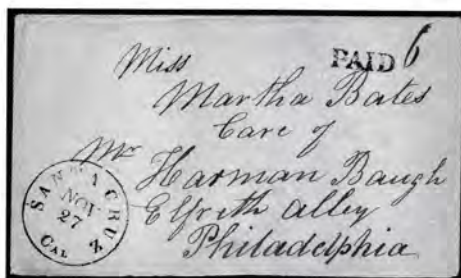 PAID 6
Miss
Martha Bates
Care of
Mr Harman Baugh
Elfreth alley
Philadelphia
SANTA CRUZ
NOV
27
CAL